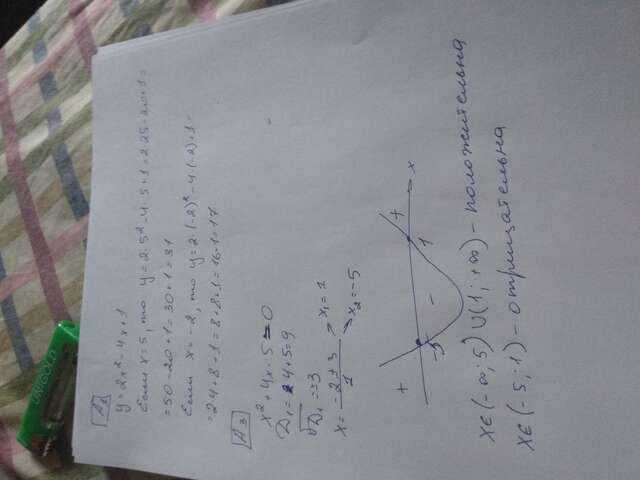 UNIGOLD
A1
y=2x²-4x+1
Если x=5, то y=2·5²-4·5+1=2·25-20+1=
=50-20+1=30+1=31
Если x=-2, то y=2·(-2)²-4·(-2)+1=
=2·4+8+1=8+8+1=16+1=17
A3
x²+4x-5=0
D₁=4+5=9
√D₁=±3
x=(-2±3)/1 x₁=1
x₂=-5
+ - +
-5 1 x
x∈(-∞;5)∪(1;+∞)-положительна
x∈(-5;1)-отрицательна